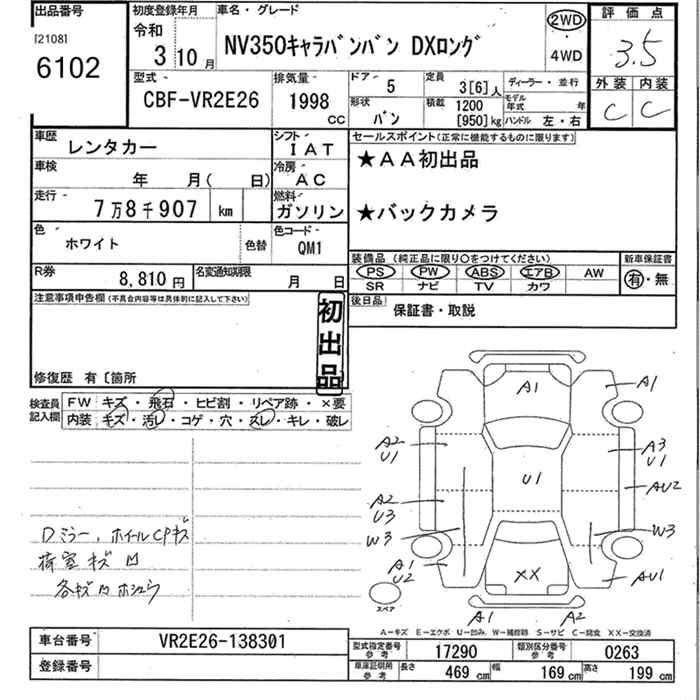 出品番号
[2108]
6102
初度登録年月
令和
3 10 月
車名・グレード
NV350キャラバンバン DXロング
2WD
4WD
評価点
3.5
外装 内装
C C
型式
CBF-VR2E26
排気量
1998
CC
ドア
5
定員
3[6]人
ディーラー・並行
形状
バン
積載
1200
[950]kg
モデル年式 年
ハンドル 左・右
車歴
レンタカー
シフト
IAT
セールスポイント(正常に機能するものに限ります)
★AA初出品
★バックカメラ
車検
年 月( 日)
冷房
AC
走行
7万8千907 km
燃料
ガソリン
色
ホワイト
色替
色コード
QM1
装備品 (純正品に限り○をつけてください)
新車保証書
PS PW ABS エアB AW
SR ナビ TV カワ
有・無
R券
8,810円
名変通知期限
月 日
後日品
保証書・取説
注意事項申告欄(不具合内容等は具体的に記入して下さい)
初出品
修復歴 有〔箇所
検査員記入欄
FW キズ・飛石・ヒビ割・リペア跡・×要
内装 キズ・汚レ・コゲ・穴・スレ・キレ・破レ
Dミラー、ホイールCPキズ
荷室キズ凹
各キズ凹ホシュウ
A1
A1
A2
U1
A3
U1
U1
AU2
A2
U3
W3
W3
A1
U2
XX
AU1
スペア
A1
A2
A-キズ E-エクボ U-凹み W-補修跡 S-サビ C-腐食 XX-交換済
車台番号
VR2E26-138301
登録番号
型式指定番号
参考
17290
類別区分番号
参考
0263
車庫証明用
参考
長さ
469 cm
幅
169 cm
高さ
199 cm